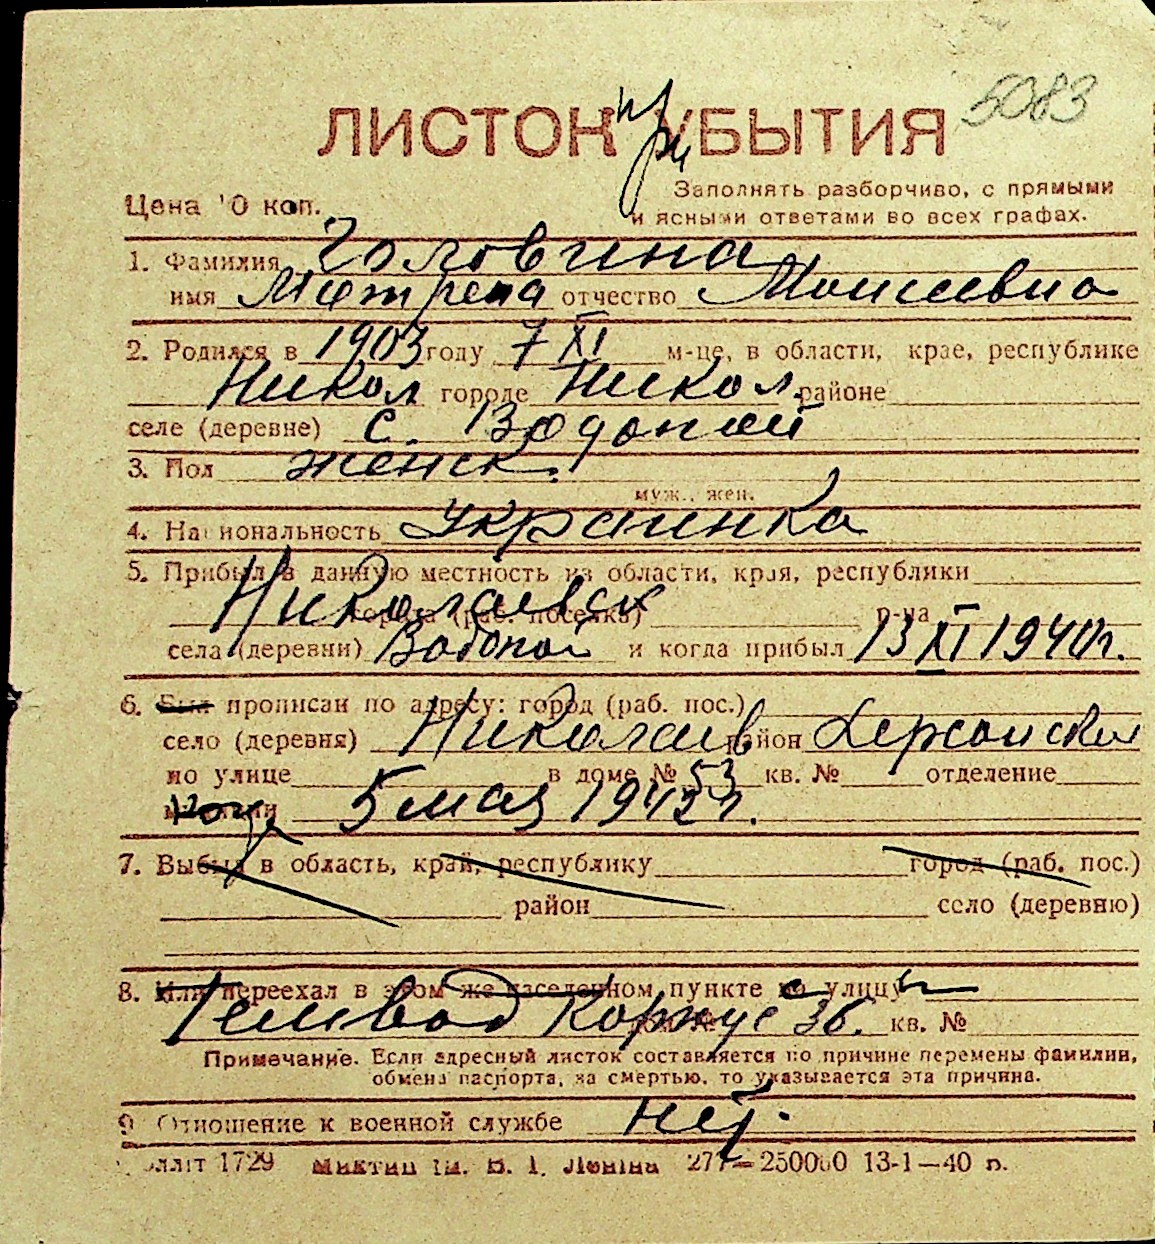 5083
ЛИСТОК при УБЫТИЯ
Цена 10 коп.
Заполнять разборчиво, с прямыми
и ясными ответами во всех графах.
1. Фамилия Головина
имя Матрена отчество Моисеевна
2. Родился в 1903 году 7 XI м-це, в области, крае, республике
Никол городе Никол. районе
селе (деревне) с. Водопой
3. Пол женск.
муж., жен.
4. Национальность Украинка
5. Прибыл в данную местность из области, края, республики
Николаевск города (раб. поселка) р-на
села (деревни) Водопой и когда прибыл 13 XI 1940г.
6. Был прописан по адресу: город (раб. пос.)
село (деревня) Николаев район Херсонский
по улице в доме № 53 кв. № отделение
когда 5 мая 1942 г.
7. Выбыл в область, край, республику город (раб. пос.)
район село (деревню)
8. Или переехал в этом же населенном пункте по улице
Темвод Корпус 36. кв. №
Примечание. Если адресный листок составляется по причине перемены фамилии,
обмена паспорта, за смертью, то указывается эта причина.
9 Отношение к военной службе нет.
1729 В. І. Леніна 277—250000 13-1—40 р.